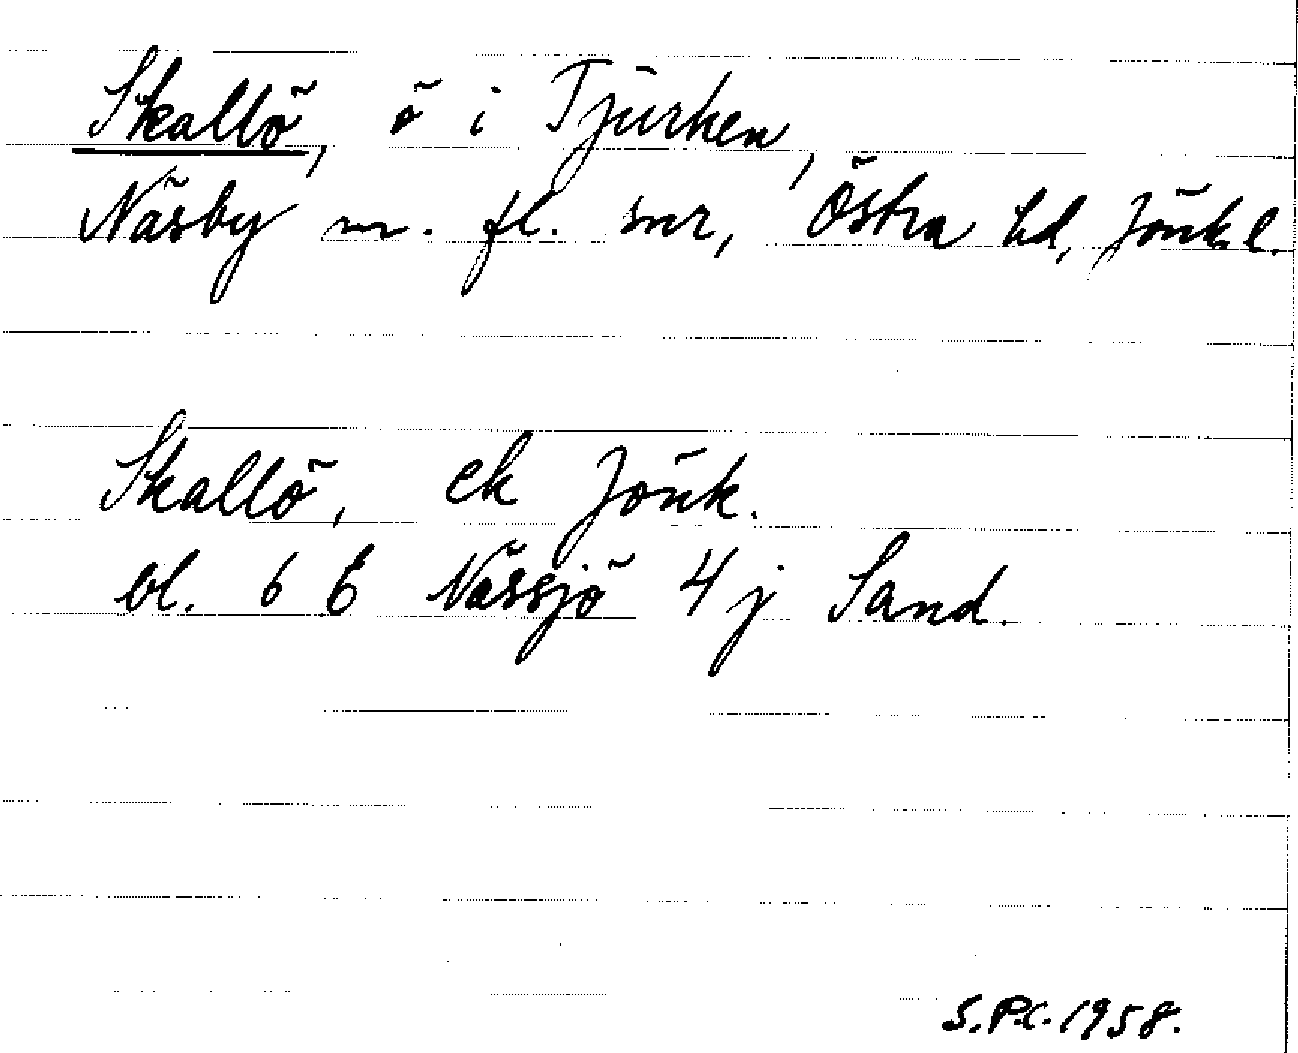 Skallö, ö i Tjurken,
Näsby m. fl. snr, Östra hd, Jönk l.
Skallö, ek Jönk.
bl. 6 E Nässjö 4 j Sand.
S.P.C. 1958.